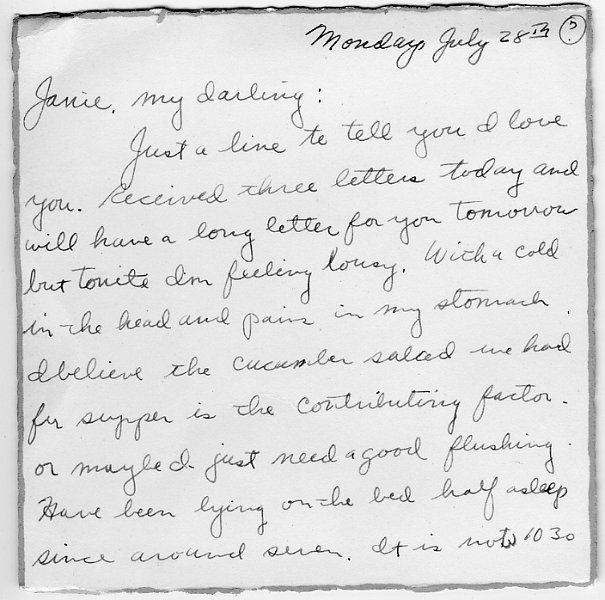 Monday July 28th ?
Janie, my darling:
Just a line to tell you I love
you. Received three letters today and
will have a long letter for you tomorrow
but tonite I'm feeling lousy. With a cold
in the head and pains in my stomach.
I believe the cucumber salad we had
for supper is the contributing factor.
or maybe I just need a good flushing.
Have been lying on the bed half asleep
since around seven. It is now 10 30